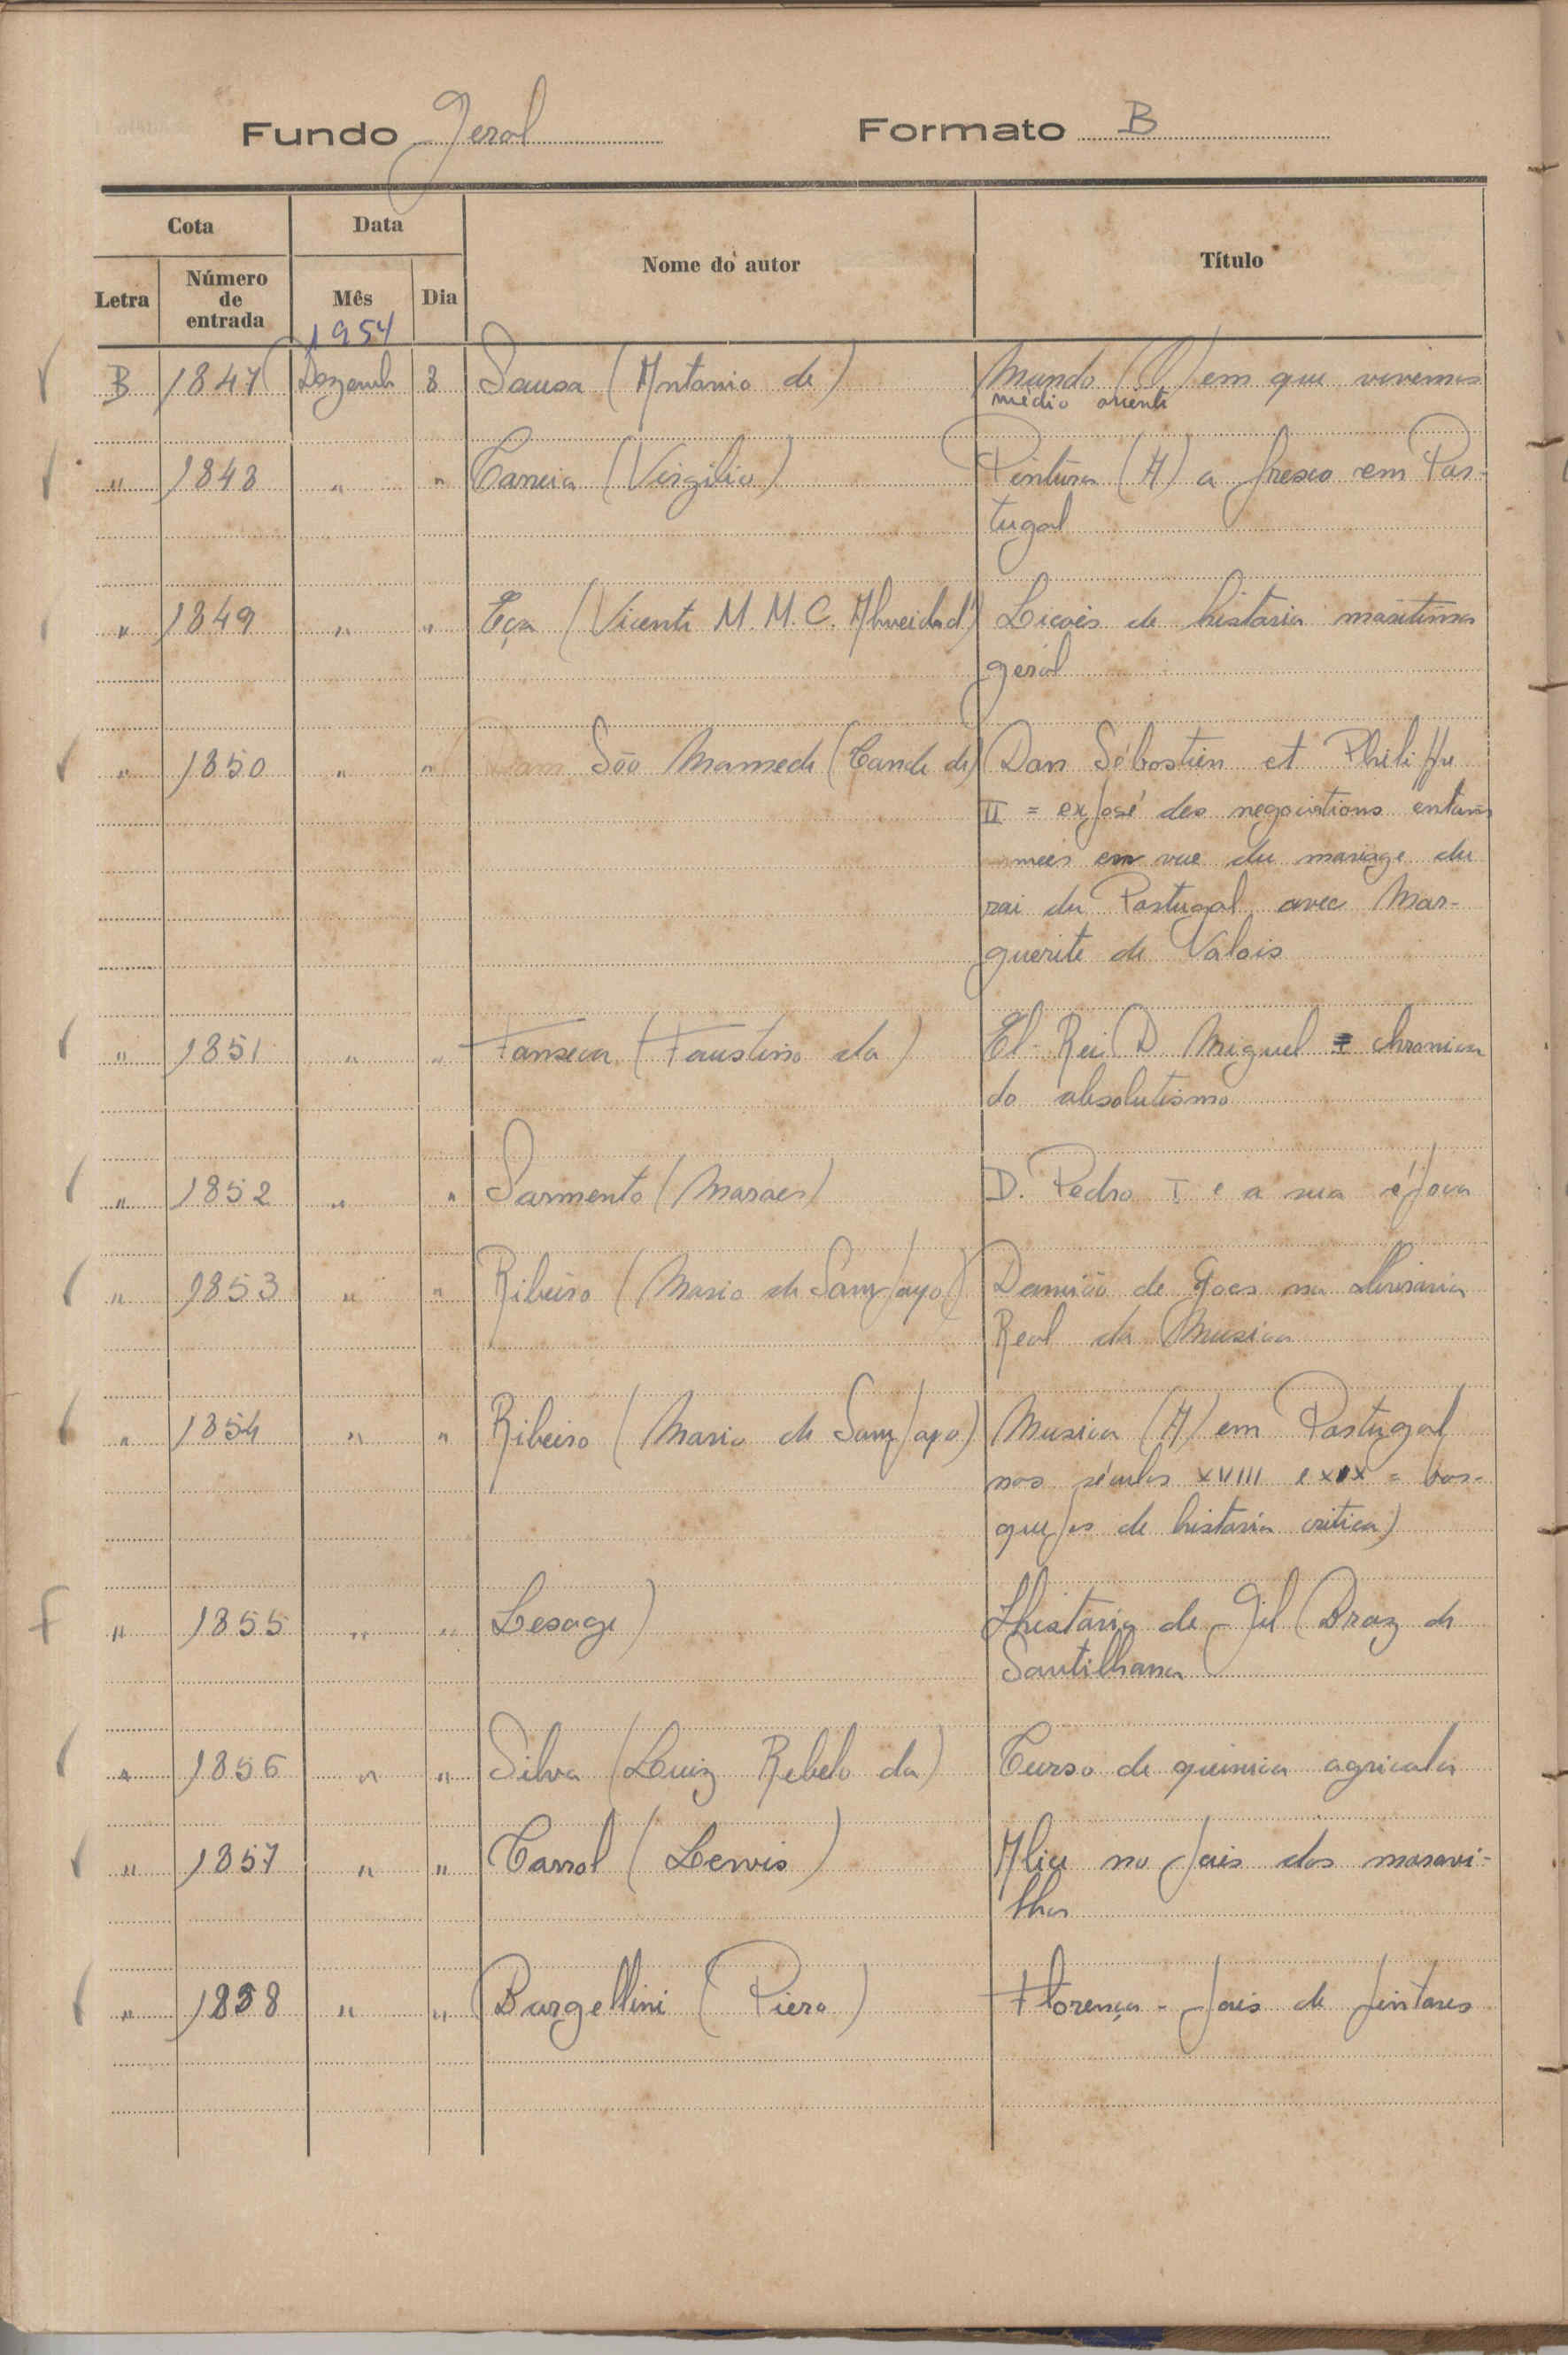 Fundo Geral Formato B
Cota Data Nome do autor Título
Letra Número de entrada Mês Dia
1954
B 1847 Dezemb 8 Sousa (Antonio de) Mundo (O) em que vivemos
médio oriente
" 1848 " " Correia (Virgilio) Pintura (A) a fresco em Por-
tugal
" 1849 " " Eça (Vicente M. M. C. Almeida d') Licões de historia maritima
geral
" 1850 " " Dom São Mamede (Conde de) Don Sébastien et Philippe
II = exposé des negociations entam
meés en vue du mariage du
roi du Portugal avec Mar-
guerite de Valois
" 1851 " " Fonseca (Faustino da) El-Rei D. Miguel = chronica
do absolutismo
" 1852 " " Sarmento (Moraes) D. Pedro I e a sua época
" 1853 " " Ribeiro (Mario de Sampayo) Damião de Goes na livraria
Real da Musica
" 1854 " " Ribeiro (Mario de Sampayo) Musica (A) em Portugal
nos séculos XVIII e XIX = bos-
quejos de historia critica)
f " 1855 " " Lesage) Historia de Gil Braz de
Santilhana
" 1856 " " Silva (Luiz Rebelo da) Curso de quimica agricola
" 1857 " " Carrol (Lewis) Alice no pais das maravi-
lhas
" 1858 " " Bargellini (Piero) Florença - pais de pintores